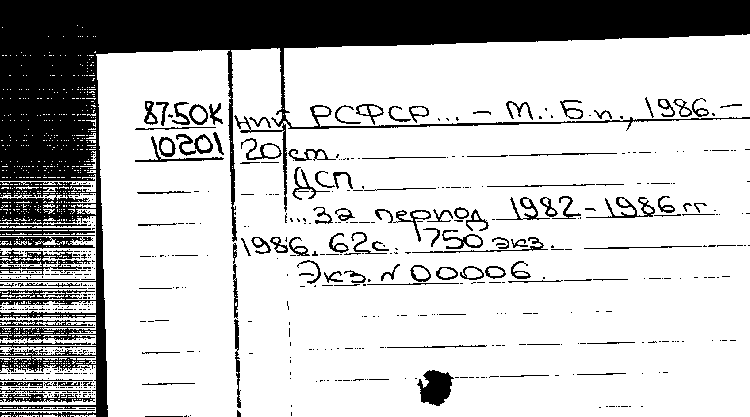 87-50К ний РСФСР... – М.: Б.и., 1986. –
10201 20 см.
ДСП.
...за период 1982-1986 гг.
1986. 62с. 750 экз.
Экз. N 00006.